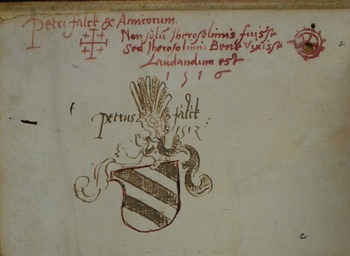 Petri falck & Amicorum.
Non solũ Iherosolimis fuisse
Sed Iherosolimis Bene vixisse
Laudandum est
1516
Petrus falck :
1512
c